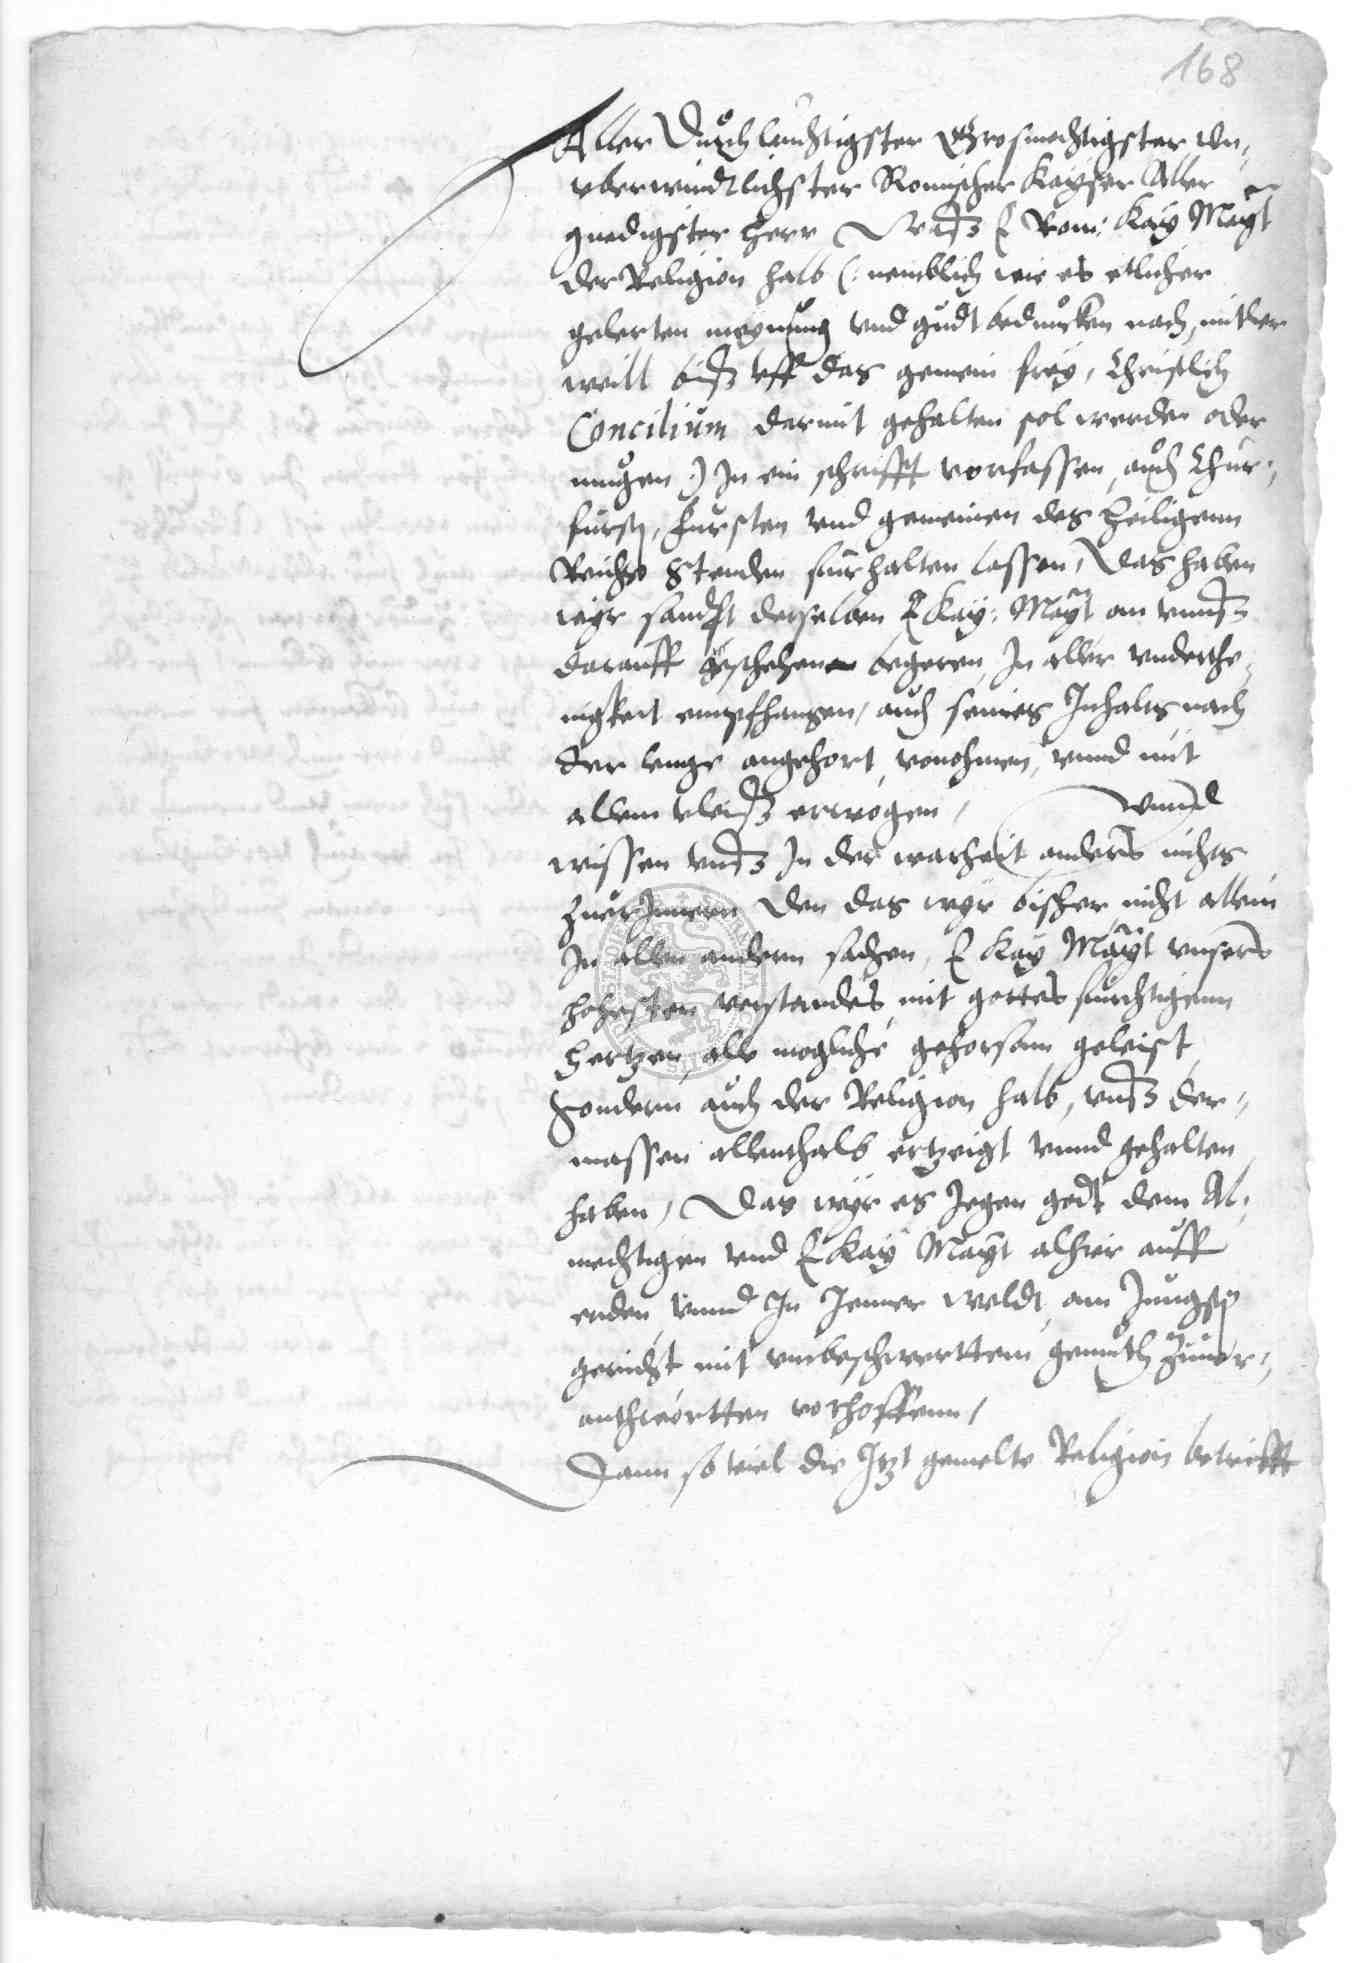 168
Aller Durchlauchtigster Grosmechtigster Un¬
vberwindtlichster Romischer Kayser Aller
gnedigster Herr Waß E Rom: Kay Mayt
der Religion halb (: nemblich wie es etlicher
gelerten meynung vnd gudtbeduncken nach, mitler
weill biß vff das gemein frey, Christlich
Concilium darmit gehalten sol werden oder
mugen :) In ein schrifft vorfassen, auch Chur¬
furst, fursten vnd gemeinen des Heiligenn
Reichs Stenden furhalten lassen, Das haben
wyr sampt derselben E Kay: Mayt an vnnß
darauff geschehenn begeren, In aller vnderthe¬
nigkeit empfhangen, auch seines Inhalts nach
der lenge angehort, vornohmen, vnnd mit
allem vleiß erwogen, Vnnd
wissen vnß In der warheit anders nichts
zuerInnern Den das wyr bißher, nicht allein
In allen andern sachen, E Kay Mayt vnsers
hohesten verstandes, mit gottes furchtigenn
Hertzen, alle mogliche gehorsam geleist,
Sondern auch der Religion halb, vnß der¬
massen allenthalb ertzeigt vnnd gehalten
haben, Das wyr es Jegen godt dem Al¬
mechtigen vnd E Kay Mayt alhier auff
erden, vnnd In Jenner weldt, am Jungst
gericht mit vnbeschwerttem gemuth Zuuer¬
anthwortten vorhoffenn,
Dann so viel die Itzt gemelte Religion betrifft